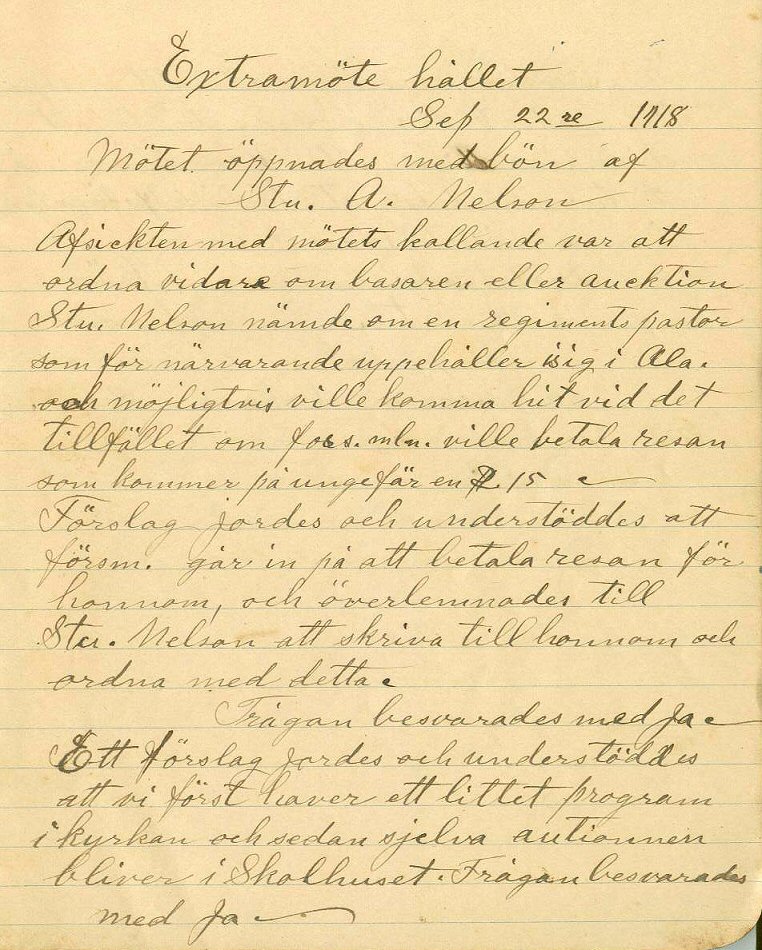 Extramöte hållet
Sep 22re 1918
Mötet öppnades med bön af
Stu. A. Nelson
Afsickten med mötets kallande var att
ordna vidare om basaren eller aucktion
Stu. Nelson nämde om en regiments pastor
som för närvarande uppehåller sig i Ala.
och möjligtvis ville komma hit vid det
tillfället om förs.mln. ville betala resan
som kommer på ungefär en $ 15
Förslag jordes och understöddes att
försm. går in på att betala resan för
honnom, och överlemnades till
Stu. Nelson att skriva till honnom och
ordna med detta.
Frågan besvarades med ja.
Ett förslag jordes och understöddes
att vi först haver ett littet program
i kyrkan och sedan sjelva autionnen
bliver i Skolhuset. Frågan besvarades
med ja